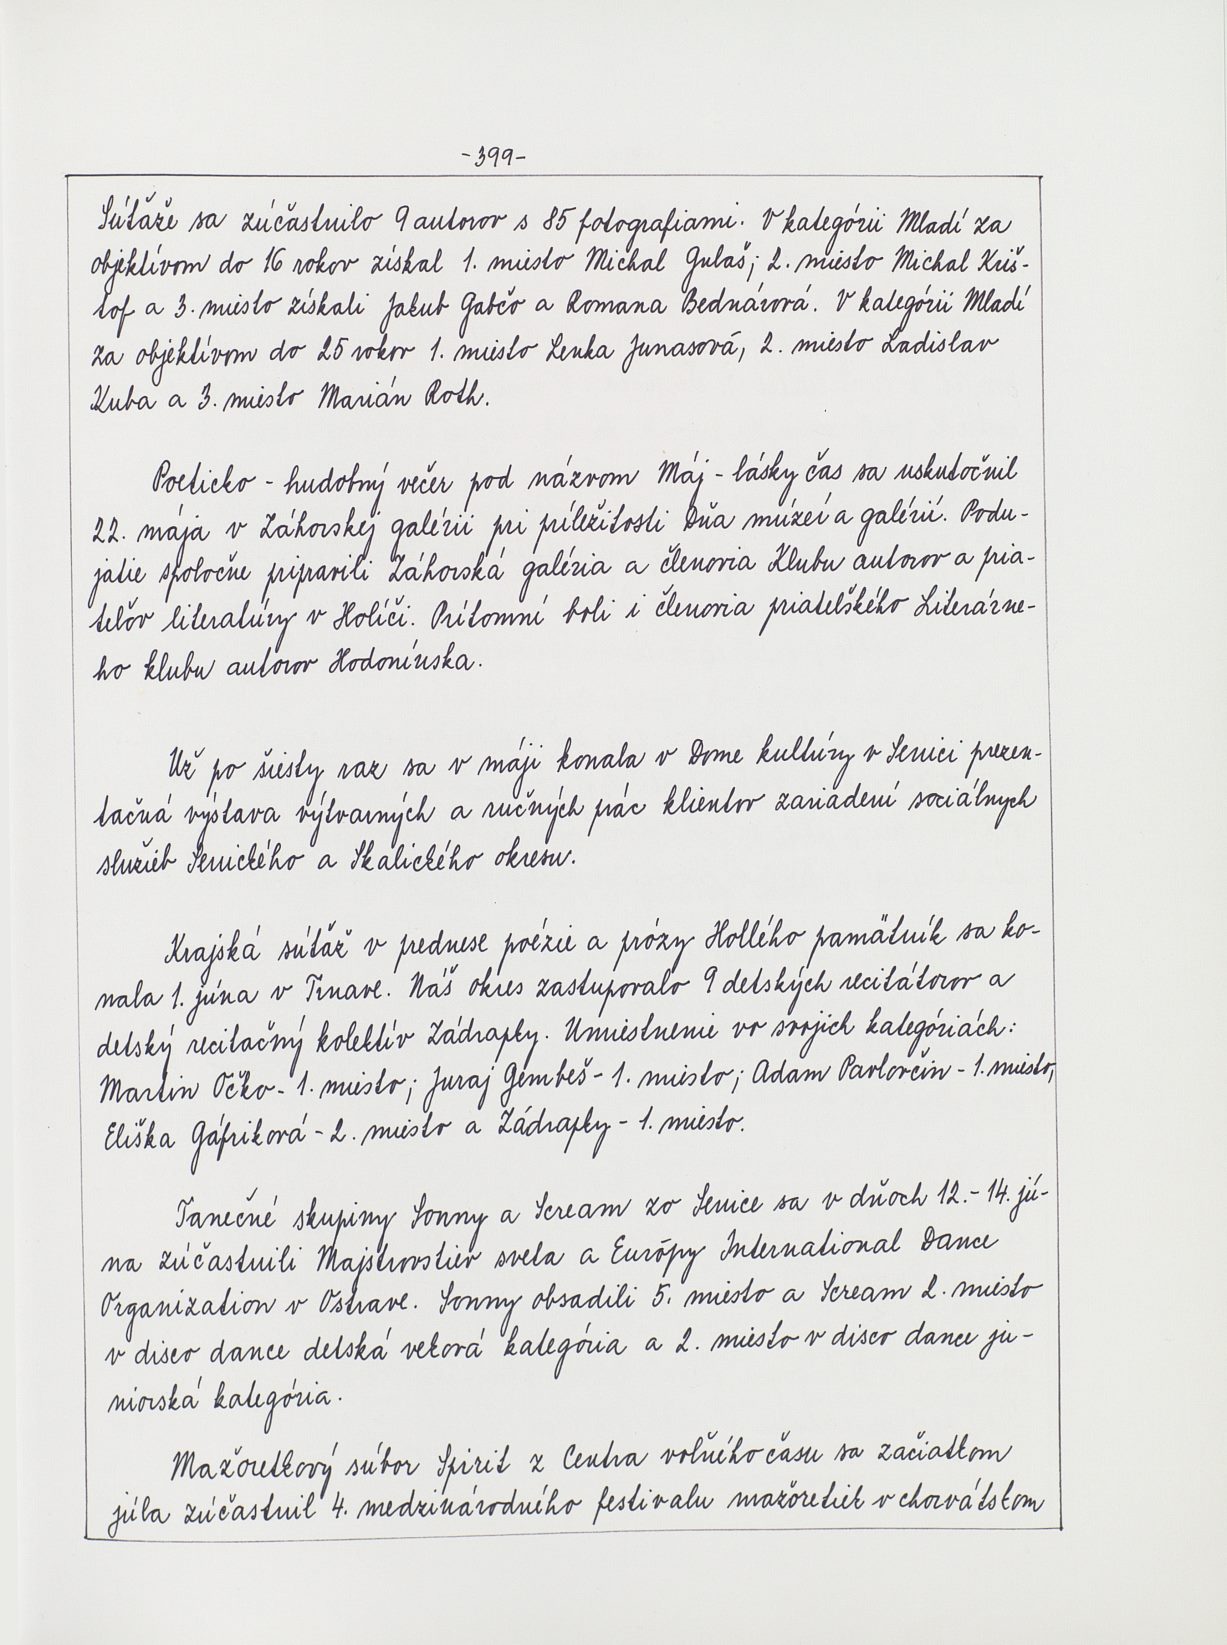 -399-
Súťaže sa zúčastnilo 9 autorov s 85 fotografiami. V kategórii Mladí za
objektívom do 16 rokov získal 1. miesto Michal Gulaš; 2. miesto Michal Kriš-
tof a 3. miesto získali Jakub Gabčo a Romana Bednárová. V kategórii Mladí
za objektívom do 25 rokov 1. miesto Lenka Junasová, 2. miesto Ladislav
Kuba a 3. miesto Marián Roth.
Poeticko - hudobný večer pod názvom Máj - lásky čas sa uskutočnil
22. mája v Záhorskej galérii pri príležitosti Dňa múzeí a galérií. Podu-
jatie spoločne pripravili Záhorská galéria a členovia Klubu autorov a pria-
teľov literatúry v Holíči. Prítomní boli i členovia priateľského Literárne-
ho klubu autorov Hodonínska.
Už po šiesty raz sa v máji konala v Dome kultúry v Senici prezen-
tačná výstava výtvarných a ručných prác klientov zariadení sociálnych
služieb Senického a Skalického okresu.
Krajská súťaž v prednese poézie a prózy Hollého pamätník sa ko-
nala 1. júna v Trnave. Náš okres zastupovalo 9 detských recitátorov a
detský recitačný kolektív Zádrapky. Umiestnenie vo svojich kategóriách:
Martin Očko - 1. miesto; Juraj Gembeš - 1. miesto; Adam Pavlovčin - 1. miesto,
Eliška Gáfriková - 2. miesto a Zádrapky - 1. miesto.
Tanečné skupiny Sonny a Scream zo Senice sa v dňoch 12. - 14. jú-
na zúčastnili Majstrovstiev sveta a Európy International Dance
Organization v Ostrave. Sonny obsadili 5. miesto a Scream 2. miesto
v disco dance detská veková kategória a 2. miesto v disco dance ju-
niorská kategória.
Mažoretkový súbor Spirit z Centra voľného času sa začiatkom
júla zúčastnil 4. medzinárodného festivalu mažoretiek v chorvátskom